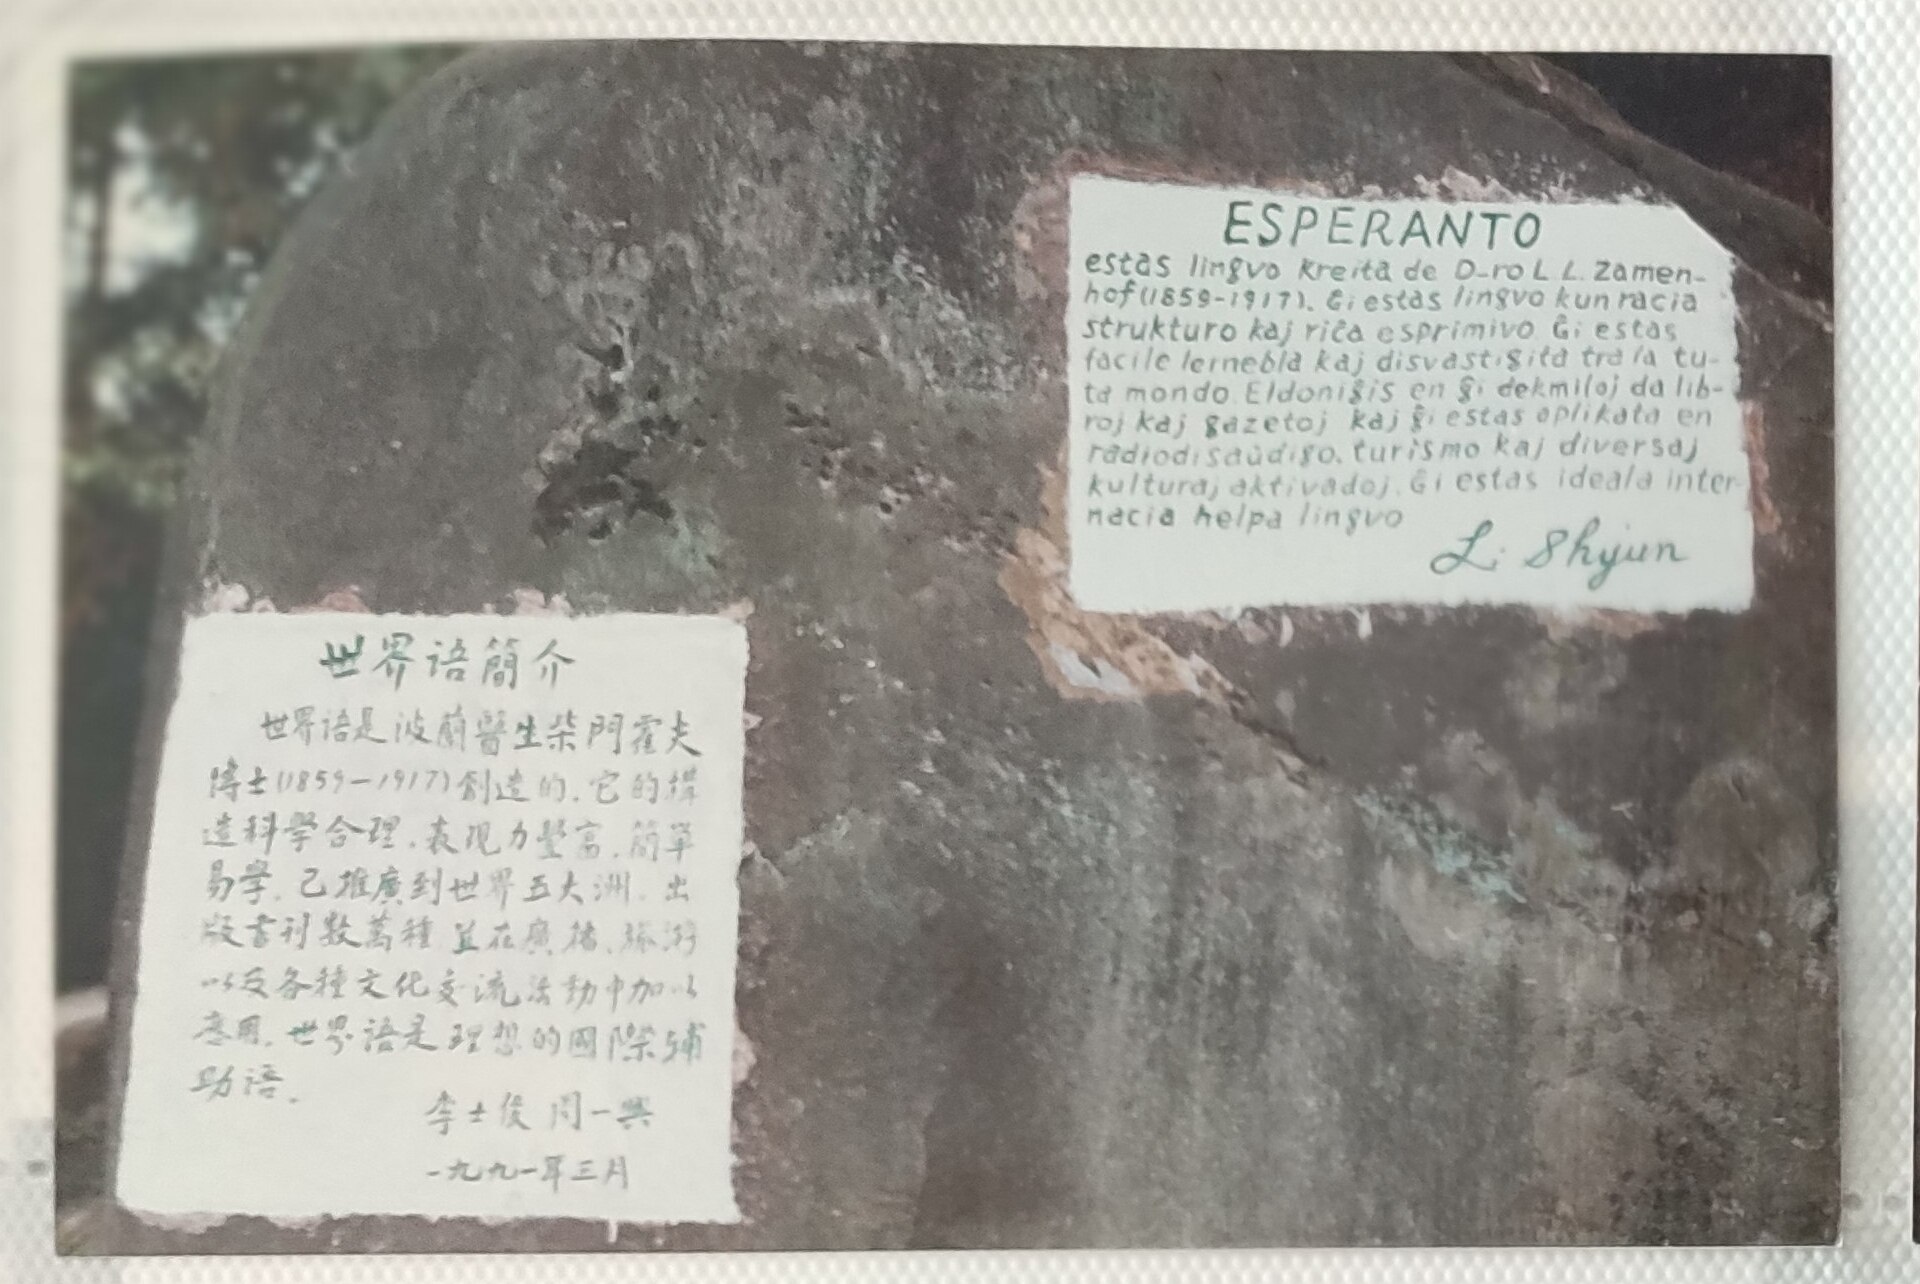 ESPERANTO
estas lingvo kreita de D-ro L. L. Zamen-
hof (1859-1917). Ĝi estas lingvo kun racia
strukturo kaj riĉa esprimivo Ĝi estas
facile lernebla kaj disvastigita tra la tu-
ta mondo. Eldoniĝis en ĝi dekmiloj da lib-
roj kaj gazetoj kaj ĝi estas aplikata en
radiodisaŭdigo, turismo kaj diversaj
kulturaj aktivadoj. Ĝi estas ideala inter-
nacia helpa lingvo
Li Shijun
世界语簡介
世界语是波蘭醫生柴門霍夫
博士(1859-1917)創造的.它的構
造科學合理.表现力豐富.簡單
易學.已推廣到世界五大洲.出
版書刊数萬種並在廣播.旅游
以及各種文化交流活動中加以
应用.世界语是理想的國際辅
助语.
李士俊 周一兴
一九九一年三月